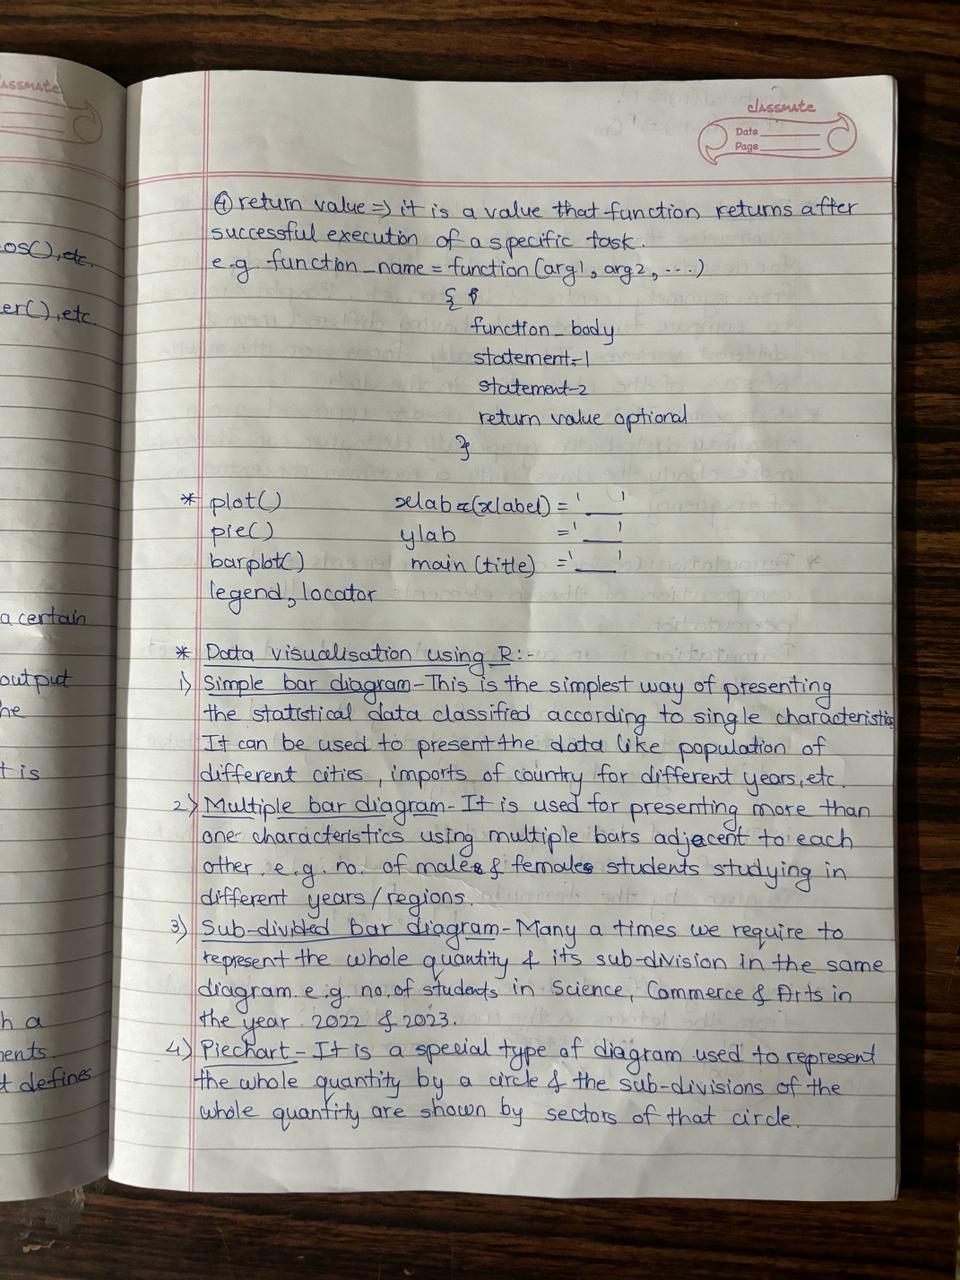 classmate
Date
Page
④ return value => it is a value that function returns after
successful execution of a specific task.
e.g. function_name = function (arg1, arg2, ....)
{
function_body
statement-1
statement-2
return value optional
}
* plot() xlab=(xlabel) = '__'
pie() ylab = '__'
barplot() main (title) = '__'
legend, locator
* Data visualisation using R:-
1) Simple bar diagram - This is the simplest way of presenting
the statistical data classified according to single characteristic
It can be used to present the data like population of
different cities, imports of country for different years, etc.
2) Multiple bar diagram - It is used for presenting more than
one characteristics using multiple bars adjacent to each
other. e.g. no. of males & females students studying in
different years/regions.
3) Sub-divided bar diagram - Many a times we require to
represent the whole quantity & its sub-division in the same
diagram. e.g. no. of students in Science, Commerce & Arts in
the year 2022 & 2023.
4) Piechart - It is a special type of diagram used to represent
the whole quantity by a circle & the sub-divisions of the
whole quantity are shown by sectors of that circle.
assmate
os(), etc.
er(), etc.
a certain
output
he
t is
h a
ents.
t defines